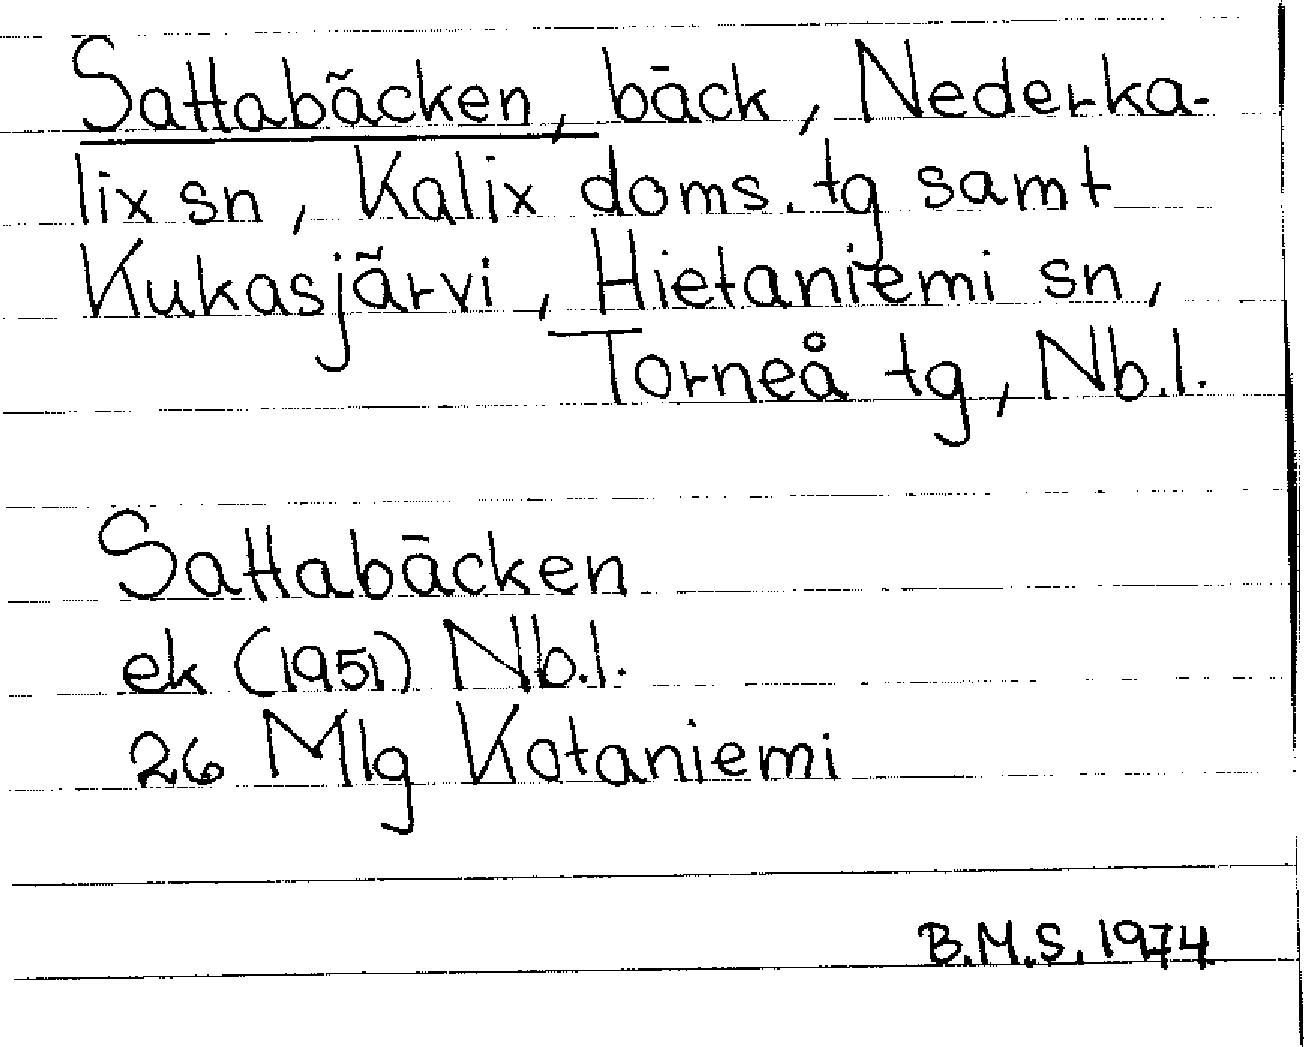 Sattabäcken, bäck, Nederka-
lix sn, Kalix doms.tg samt
Kukasjärvi, Hietaniemi sn,
Torneå tg, Nb.l.
Sattabäcken
ek (1951) Nb.l.
26 Mlg Kotaniemi
B.M.S. 1974